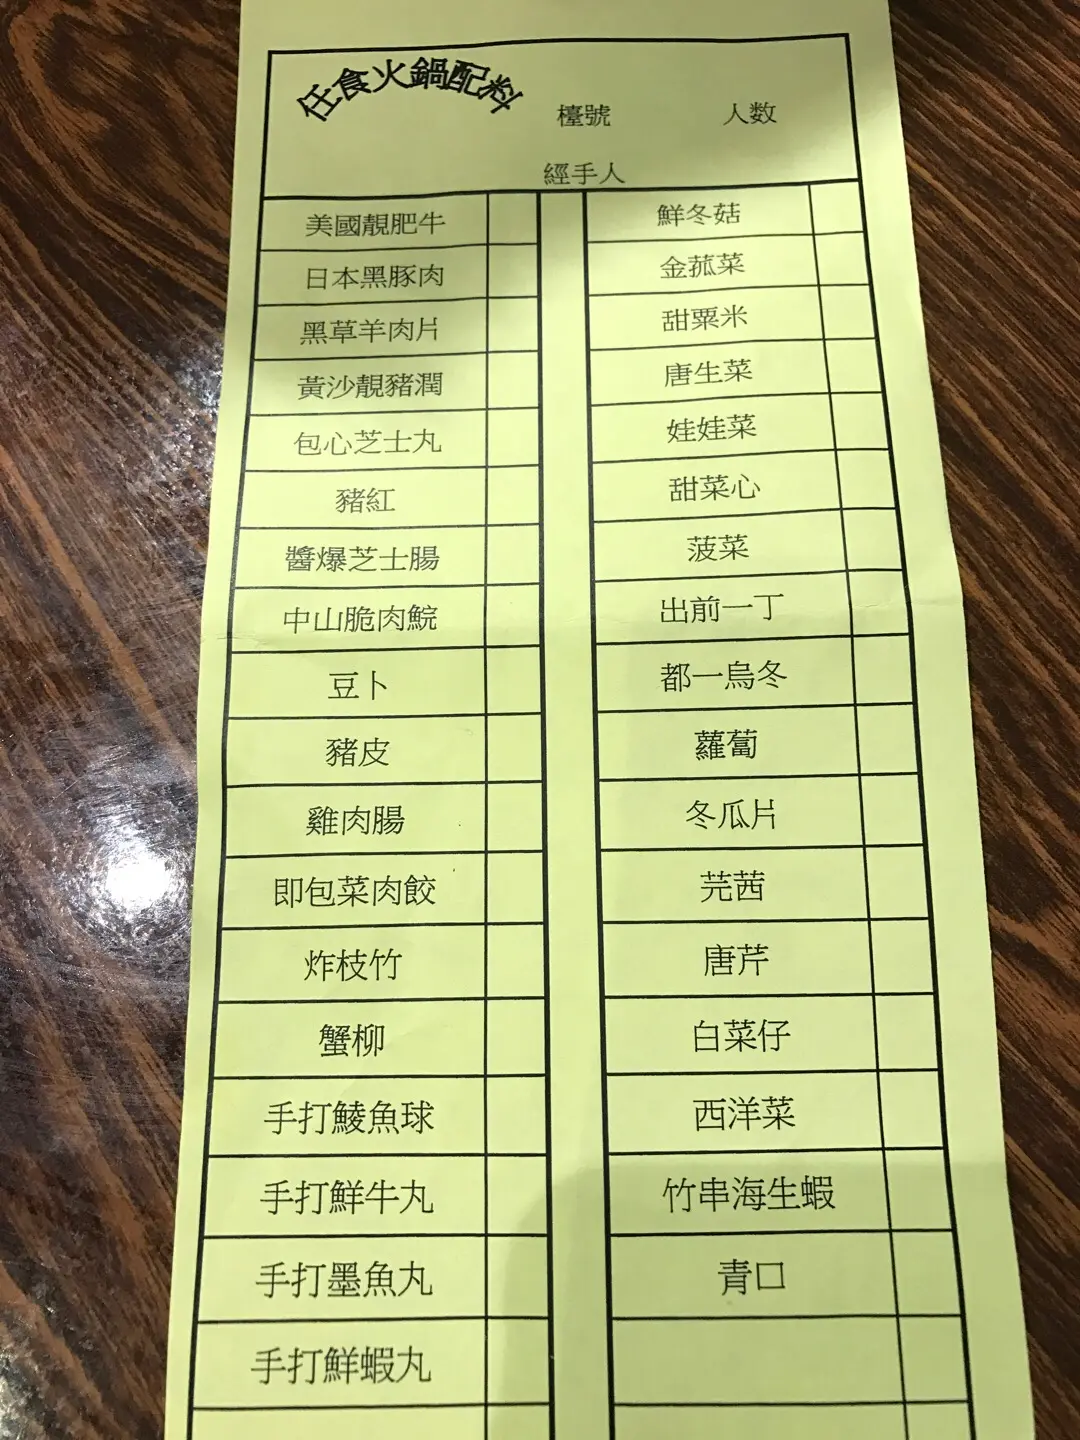 任食火鍋配料
檯號 人数
經手人
美國靚肥牛
日本黑豚肉
黑草羊肉片
黃沙靚豬潤
包心芝士丸
豬紅
醬爆芝士腸
中山脆肉鯇
豆卜
豬皮
雞肉腸
即包菜肉餃
炸枝竹
蟹柳
手打鯪魚球
手打鮮牛丸
手打墨魚丸
手打鮮蝦丸
鮮冬菇
金菰菜
甜粟米
唐生菜
娃娃菜
甜菜心
菠菜
出前一丁
都一烏冬
蘿蔔
冬瓜片
芫茜
唐芹
白菜仔
西洋菜
竹串海生蝦
青口